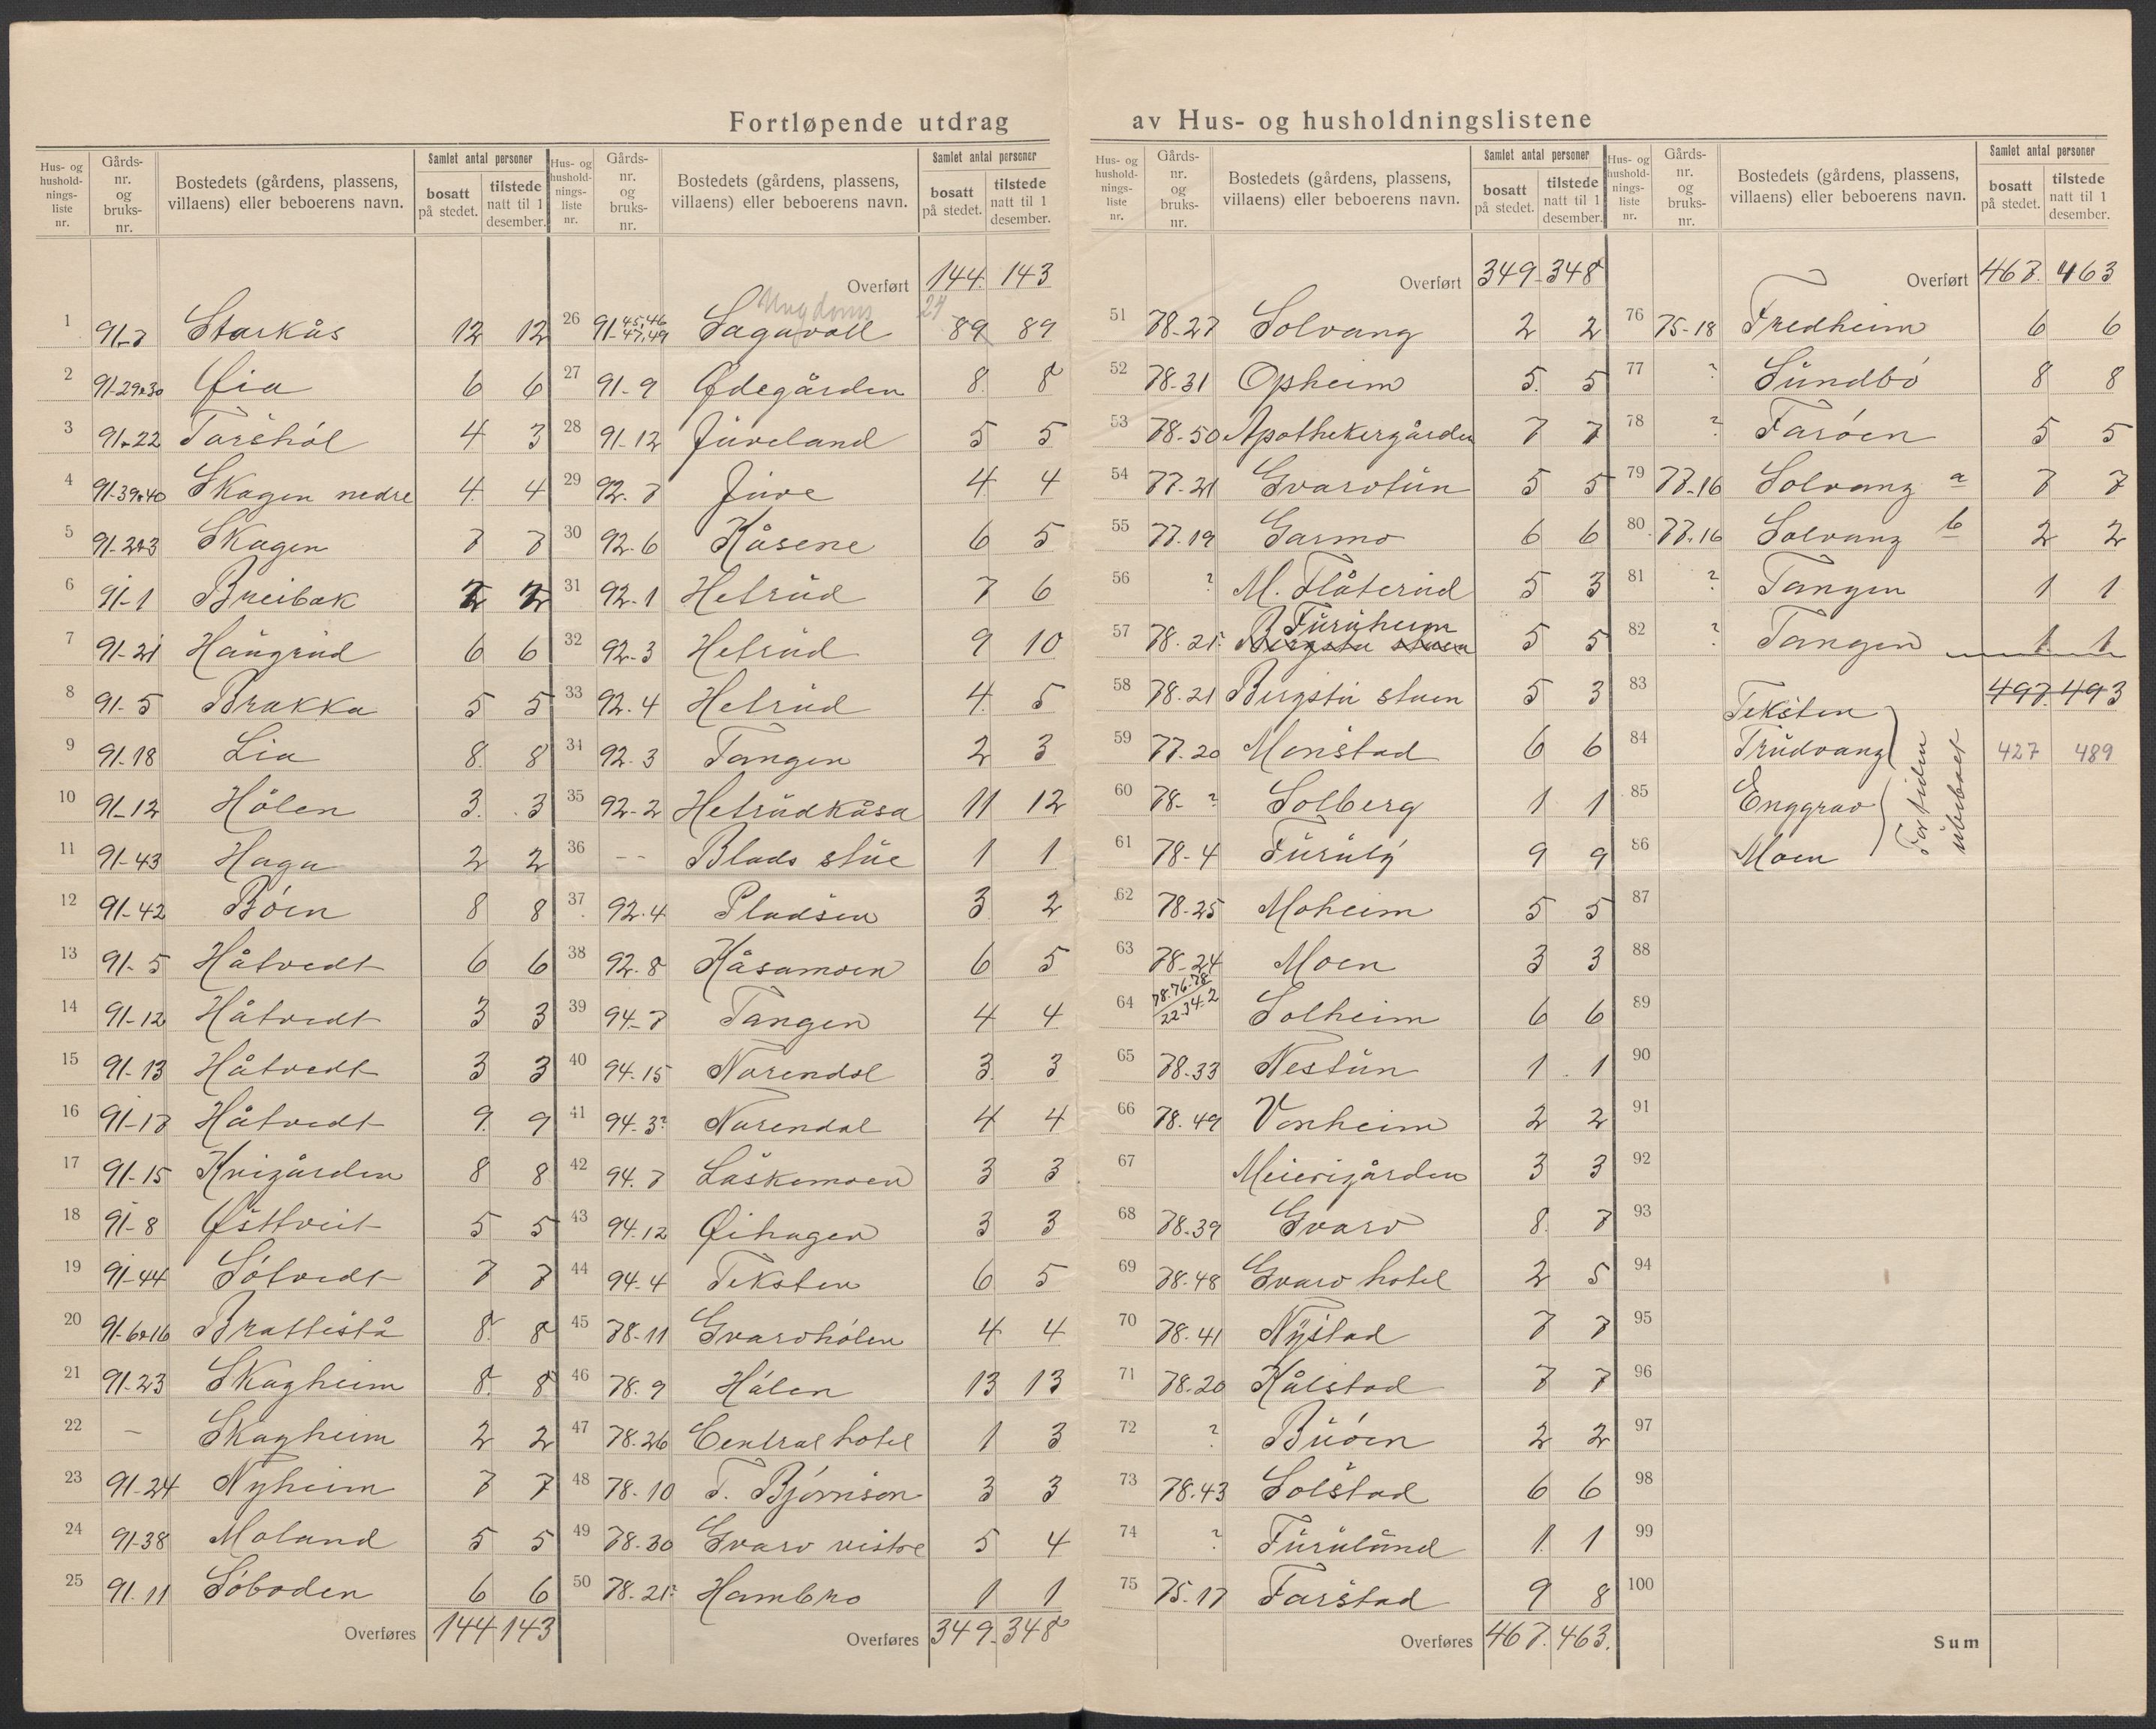 Fortløpende utdrag av Hus- og husholdningslistene
Hus- og husholdnings- liste nr. Gårds- nr. og bruks- nr. Bostedets (gårdens, plassens, villaens) eller beboerens navn. Samlet antal personer bosatt på stedet. tilstede natt til 1 desember.
1 91-7 Starkås 12 12
2 91-29&30 Øia 6 6
3 91-22 Torshol 4 3
4 91-39&40 Skogen nedre 4 4
5 91-2&3 Skogen 7 7
6 91-1 Breibak 2 2
7 91-21 Haugrud 6 6
8 91-5 Brakka 5 5
9 91-18 Lia 8 8
10 91-12 Hølen 3 3
11 91-43 Haga 2 2
12 91-42 Bøen 8 8
13 91-5 Håtvedt 6 6
14 91-12 Håtvedt 3 3
15 91-13 Håtvedt 3 3
16 91-17 Håtvedt 9 9
17 91-15 Krigården 8 8
18 91-8 Østtveit 5 5
19 91-44 Søtvedt 7 7
20 91-6&16 Brattestå 8 8
21 91-23 Skogheim 8 8
22 – Skogheim 2 2
23 91-24 Nyheim 7 7
24 91-38 Moland 5 5
25 91.11 Søboden 6 6
Overføres 144 143
Hus- og husholdnings- liste nr. Gårds- nr. og bruks- nr. Bostedets (gårdens, plassens, villaens) eller beboerens navn. Samlet antal personer bosatt på stedet. tilstede natt til 1 desember.
Overført 144 143
Ungdoms 24
26 91-45,46 47,49 Sagavoll 89 89
27 91-9 Ødegården 8 8
28 91-12 Juveland 5 5
29 92-7 Juve 4 4
30 92-6 Kåsene 6 5
31 92-1 Hetrud 7 6
32 92-3 Hetrud 9 10
33 92-4 Hetrud 4 5
34 92-3 Tangen 2 3
35 92-2 Hetrudkåsa 11 12
36 -- Blads stue 1 1
37 92-4 Pladsen 3 2
38 92-8 Kåsamoen 6 5
39 94-7 Tangen 4 4
40 94-15 Norendal 3 3
41 94-3? Norendal 4 4
42 94.7 Låskemoen 3 3
43 94.12 Øihagen 3 3
44 94-4 Teksten 6 5
45 78-11 Gvarvhølen 4 4
46 78.9 Hølen 13 13
47 78.26 Central hotel 1 3
48 78-10 T. Bjørnson 3 3
49 78.30 Gvarv vistre 5 4
50 78.21? Hambro 1 1
Overføres 349 348
Hus- og hushold- nings- liste nr. Gårds- nr. og bruks- nr. Bostedets (gårdens, plassens, villaens) eller beboerens navn. Samlet antal personer bosatt på stedet. tilstede natt til 1 desember.
Overført 349 348
51 78-27 Solvang 2 2
52 78-31 Opheim 5 5
53 78-50 Apothekergården 7 7
54 77-21 Gvarvtun 5 5
55 77.19 Garmo 6 6
56 ? M. Flåterud 5 3
57 78.21 Bergstu stuen Furuheim 5 5
58 78.21 Bergstu stuen 5 3
59 77.20 Monstad 6 6
60 78- ? Solberg 1 1
61 78-4 Furuly 9 9
62 78-25 Moheim 5 5
63 78-24 Moen 3 3
64 78.76.78 22.34.2 Solheim 6 6
65 78.33 Nestun 1 1
66 78.49 Vonheim 2 2
67 Meierigården 3 3
68 78.39 Gvarv 8 7
69 78.48 Gvarv hotel 2 5
70 78.41 Nystad 7 7
71 78.20 Kålstad 7 7
72 ? Buøen 2 2
73 78.43 Solstad 6 6
74 ? Furulund 1 1
75 75.17 Farstad 9 8
Overføres 467 463
Hus- og husholdnings- liste nr. Gårds- nr. og bruks- nr. Bostedets (gårdens, plassens, villaens) eller beboerens navn. Samlet antal personer bosatt på stedet. tilstede natt til 1 desember.
Overført 467 463
76 75-18 Fredheim 6 6
77 ? Sundbø 8 8
78 ? Farøen 5 5
79 77-16 Solvang a 7 7
80 77-16 Solvang b 2 2
81 ? Tangen 1 1
82 ? Tangen 1 1
83 Teksten 497 493
84 Trudvang 427 489
85 Enggrav
86 Moen
For tiden ubeboet
87
88
89
90
91
92
93
94
95
96
97
98
99
100
Sum